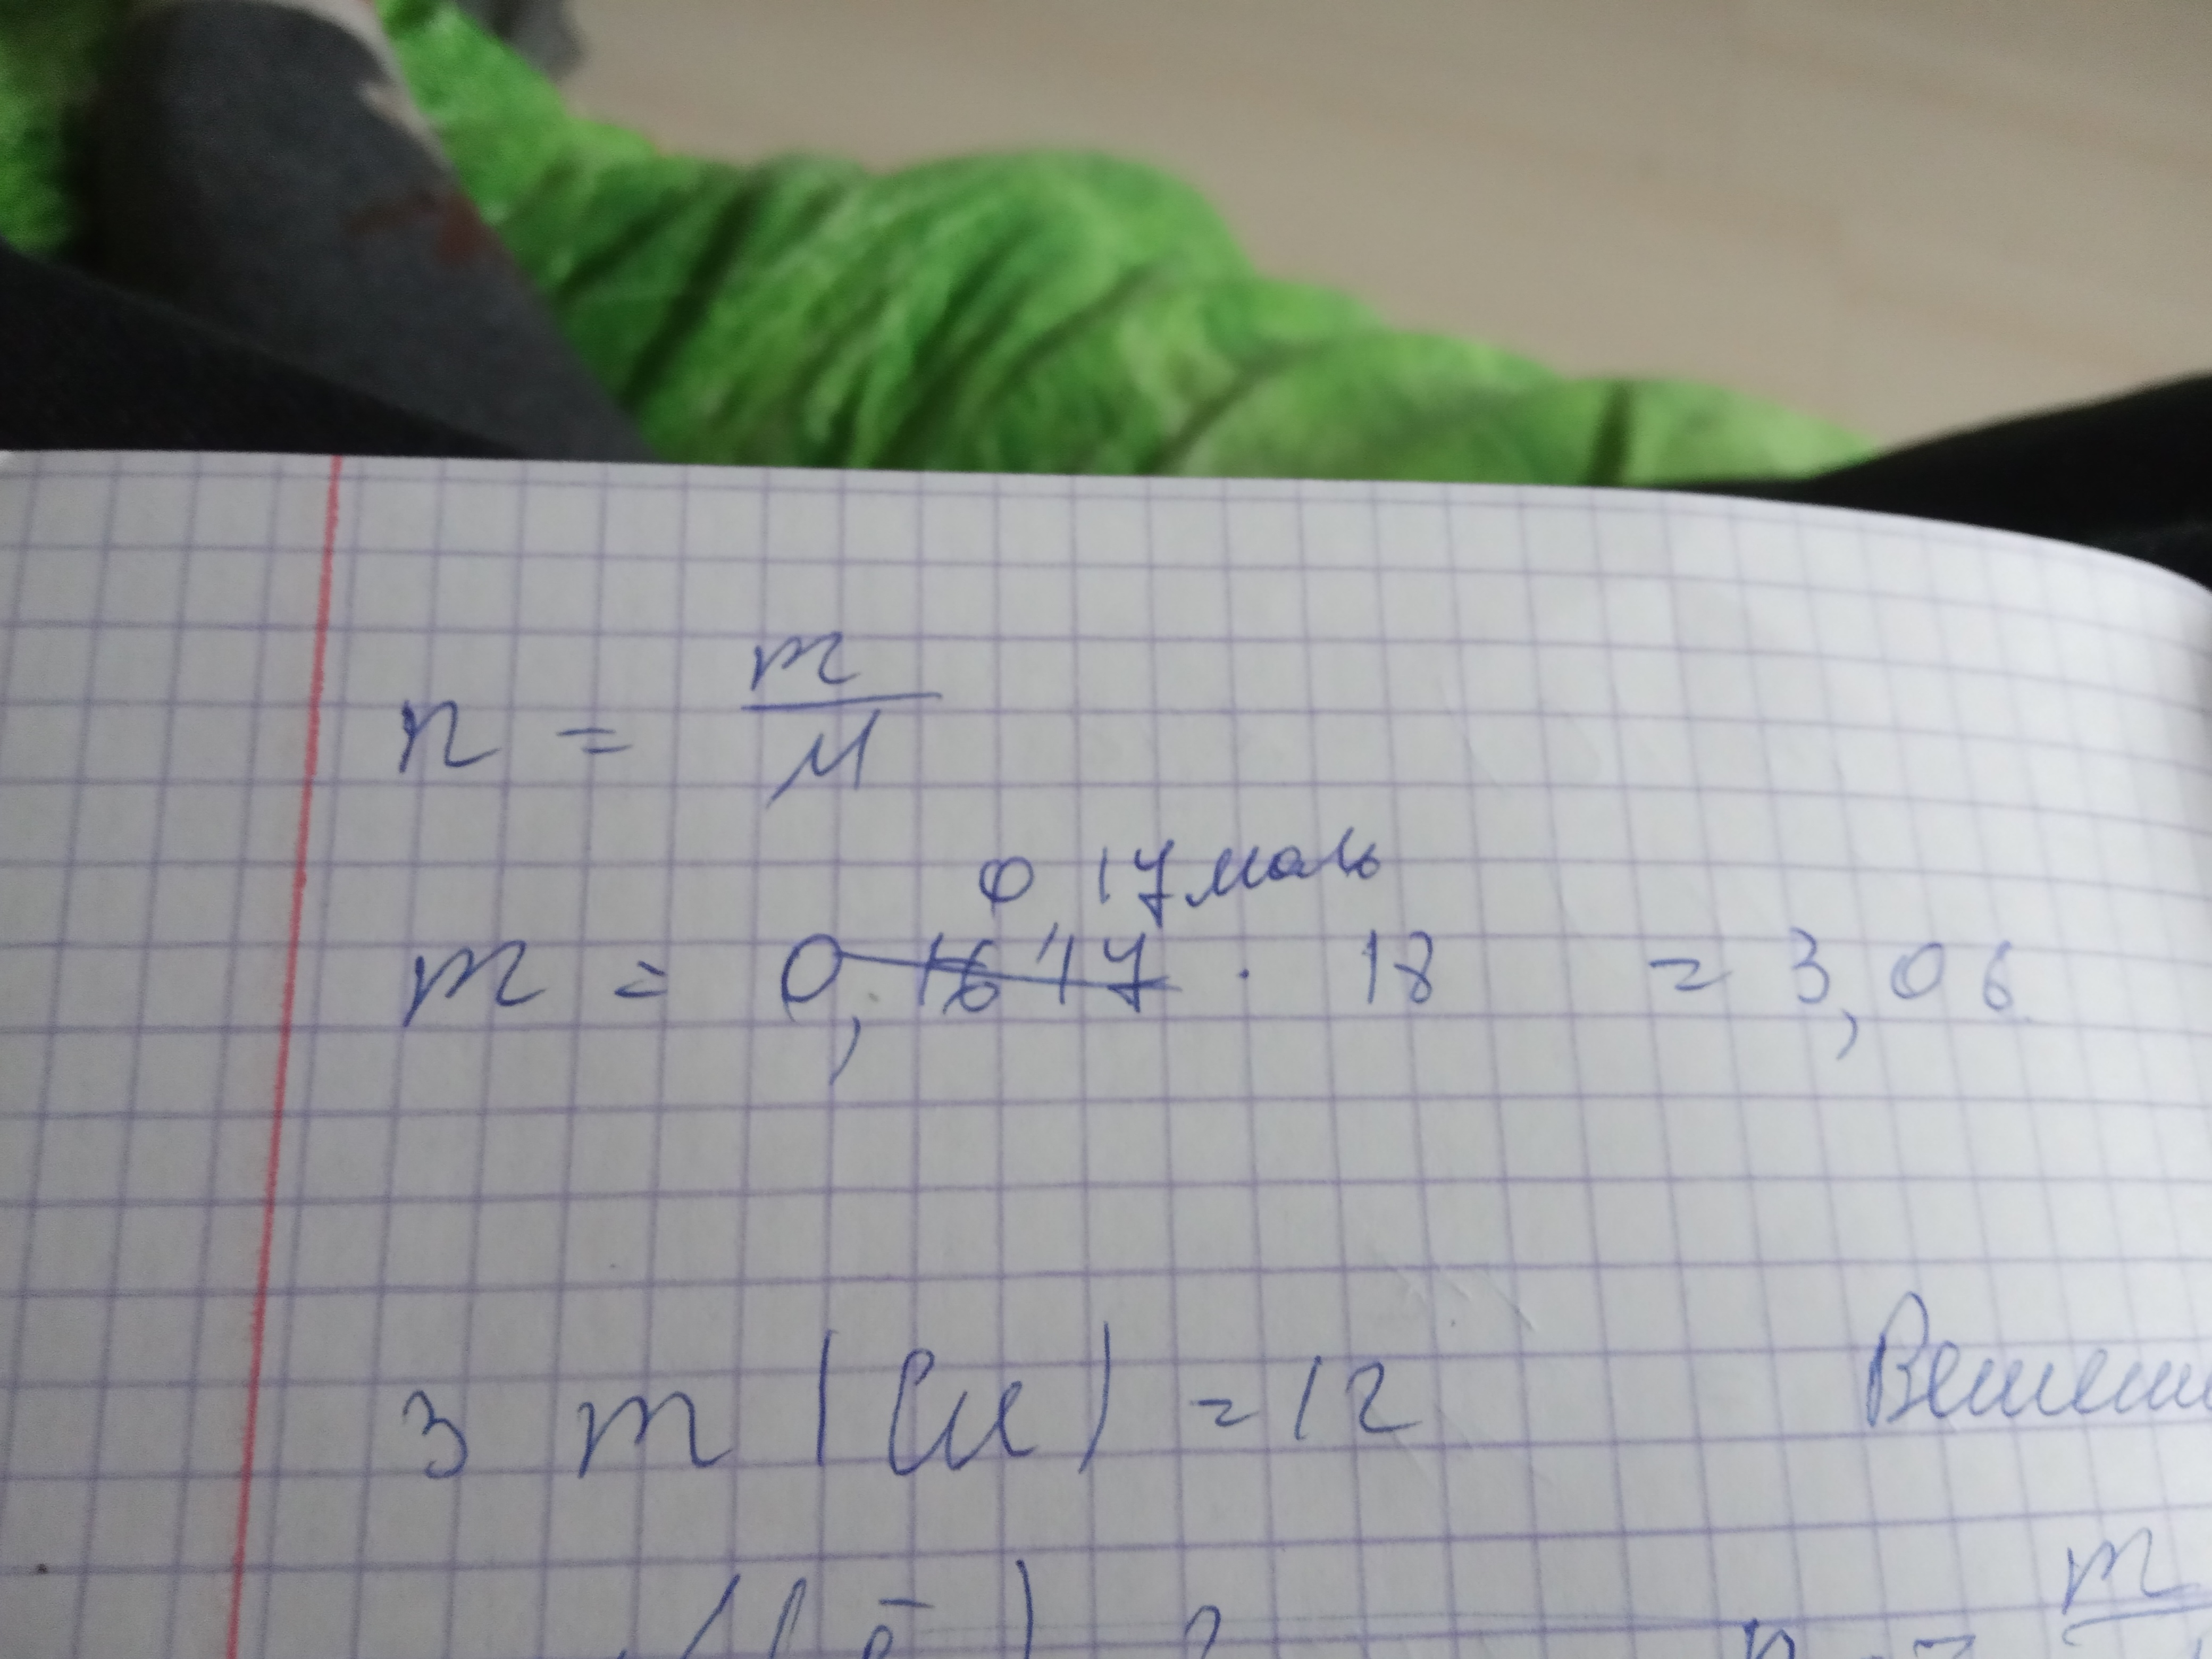 n = m/M
0,17 моль
m = 0,1617 · 18 = 3,06
3 m (Cu) = 12
n = m